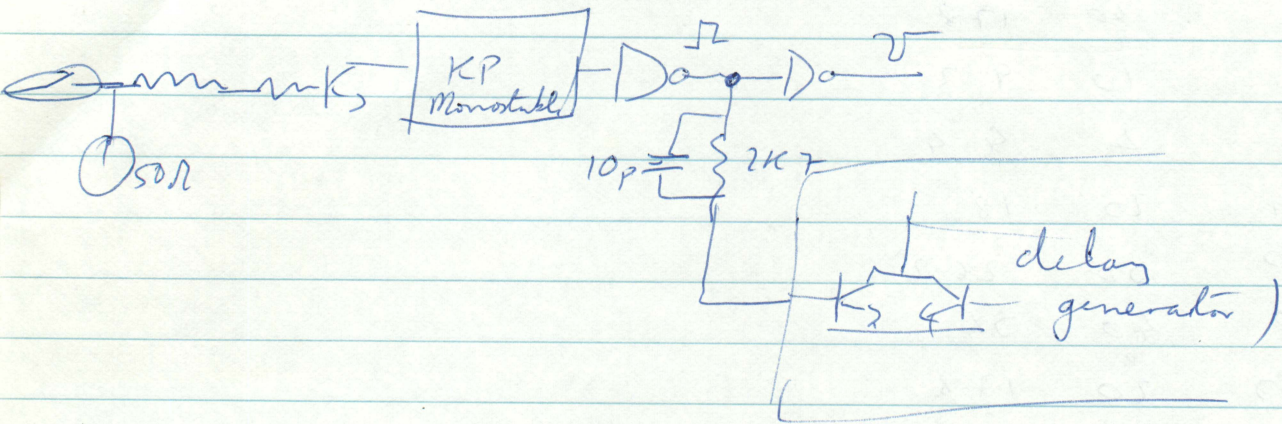 KP
Monostable
10p
2K7
50Ω
delay
generator)